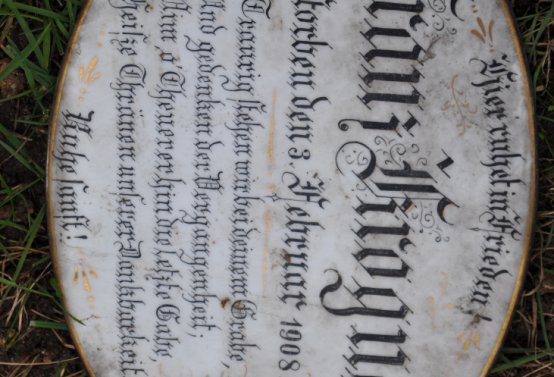 Hier ruhet in Frieden!
den 3. Februar 1908
Traurig stehen wir bei deinem Grabe,
Und gedenken der Vergangenheit;
Nim o Theurer hin die letzte Gabe,
Heiße Thränen unserer Dankbarkeit
Ruhe sanft!